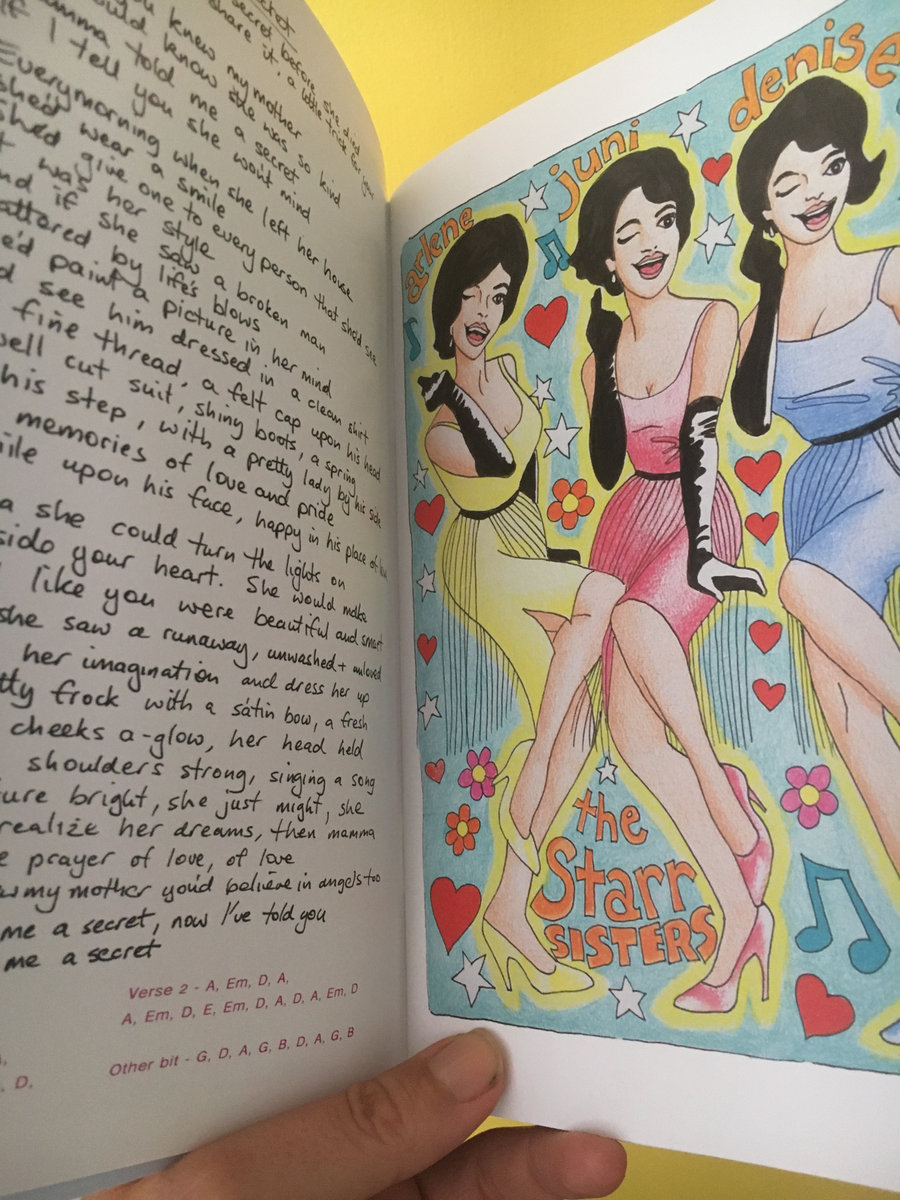 secret before she died
share it, a little trick for you
you knew my mother
would know she was so kind
mamma told me a secret
if I tell you she wont mind
Every morning when she left her house
she'd wear a smile
she'd give one to every person that she'd see
it was her style
and if she saw a broken man
battered by life's blows
she'd paint a picture in her mind
see him dressed in a clean shirt
fine thread, a felt cap upon his head
well cut suit, shiny boots, a spring
his step, with a pretty lady by his side
memories of love and pride
smile upon his face, happy in his place of
she could turn the lights on
inside your heart. She would make
like you were beautiful and smart
she saw a runaway, unwashed + unloved
her imagination and dress her up
frock with a satin bow, a fresh
cheeks a-glow, her head held
shoulders strong, singing a song
bright, she just might, she
realize her dreams, then mamma
prayer of love, of love
my mother you'd believe in angels too
me a secret, now I've told you
me a secret
Verse 2 - A, Em, D, A,
A, Em, D, E, Em, D, A, D, A, Em, D
Other bit - G, D, A, G, B, D, A, G, B
D,
arlene
juni
denise
the
Starr
SISTERS